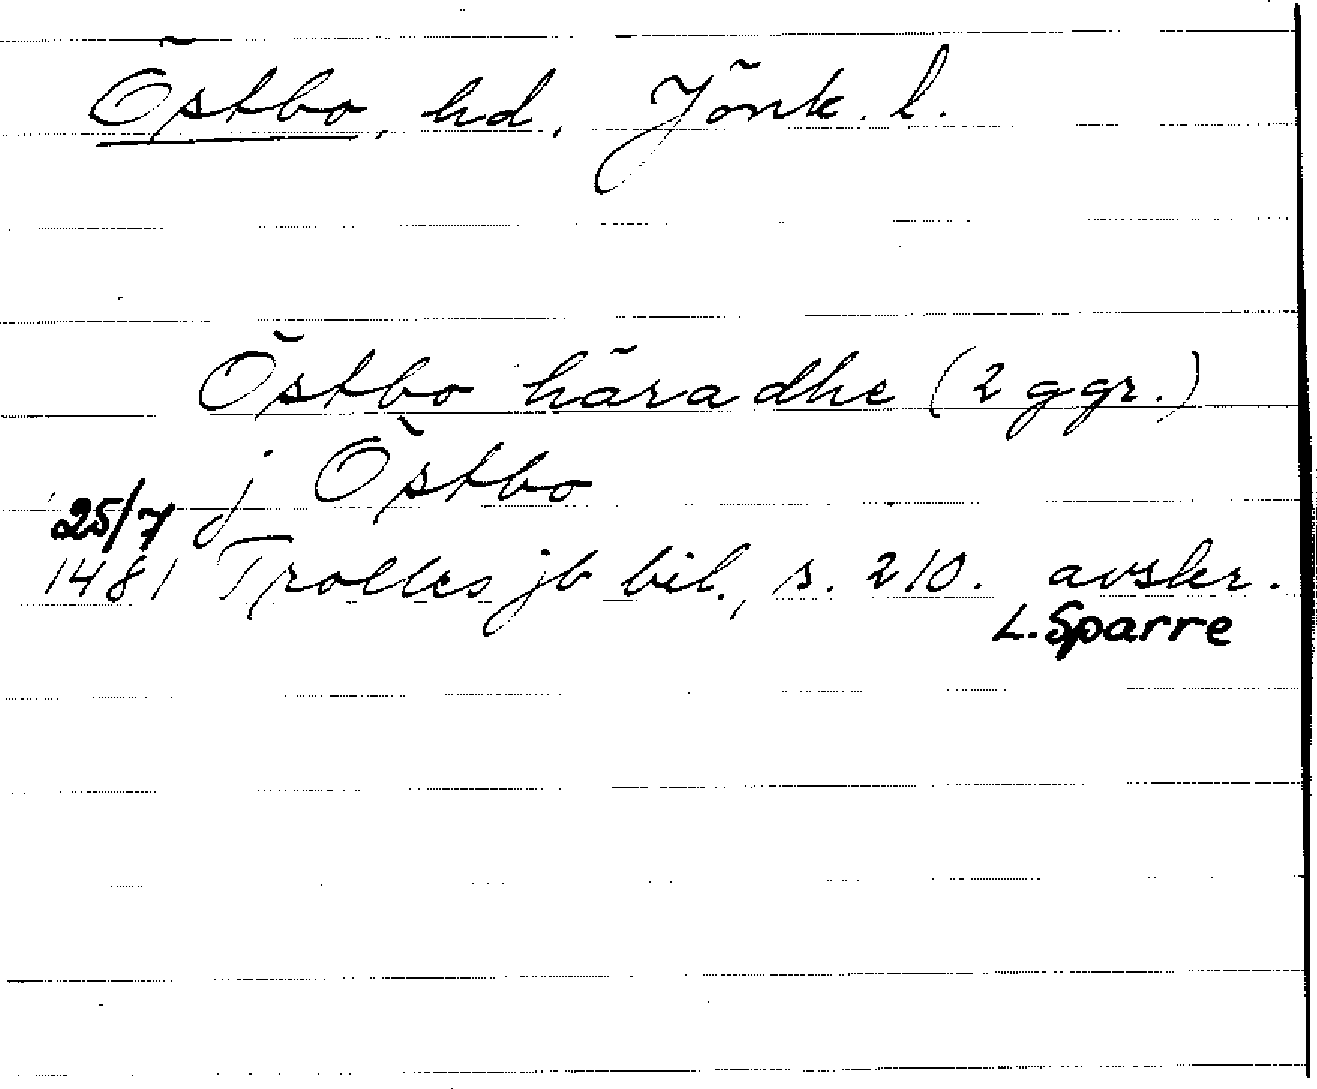 Östbo, hd, Jönk. l.
Östbo häradhe (2 ggr.)
j Östbo
25/7
1481 Trolles jb bil., s. 210. avskr.
L. Sparre